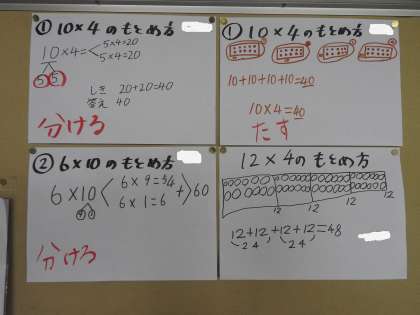 ① 10×4のもとめ方
10×4=
5×4=20
5×4=20
5 5
しき 20+20=40
答え 40
分ける
① 10×4のもとめ方
10+10+10+10=40
10×4=40
たす
② 6×10のもとめ方
6×10
6×9=54
6×1=6
+
60
9 1
分ける
12×4のもとめ方
12 12 12 12
12+12+12+12=48
24 24